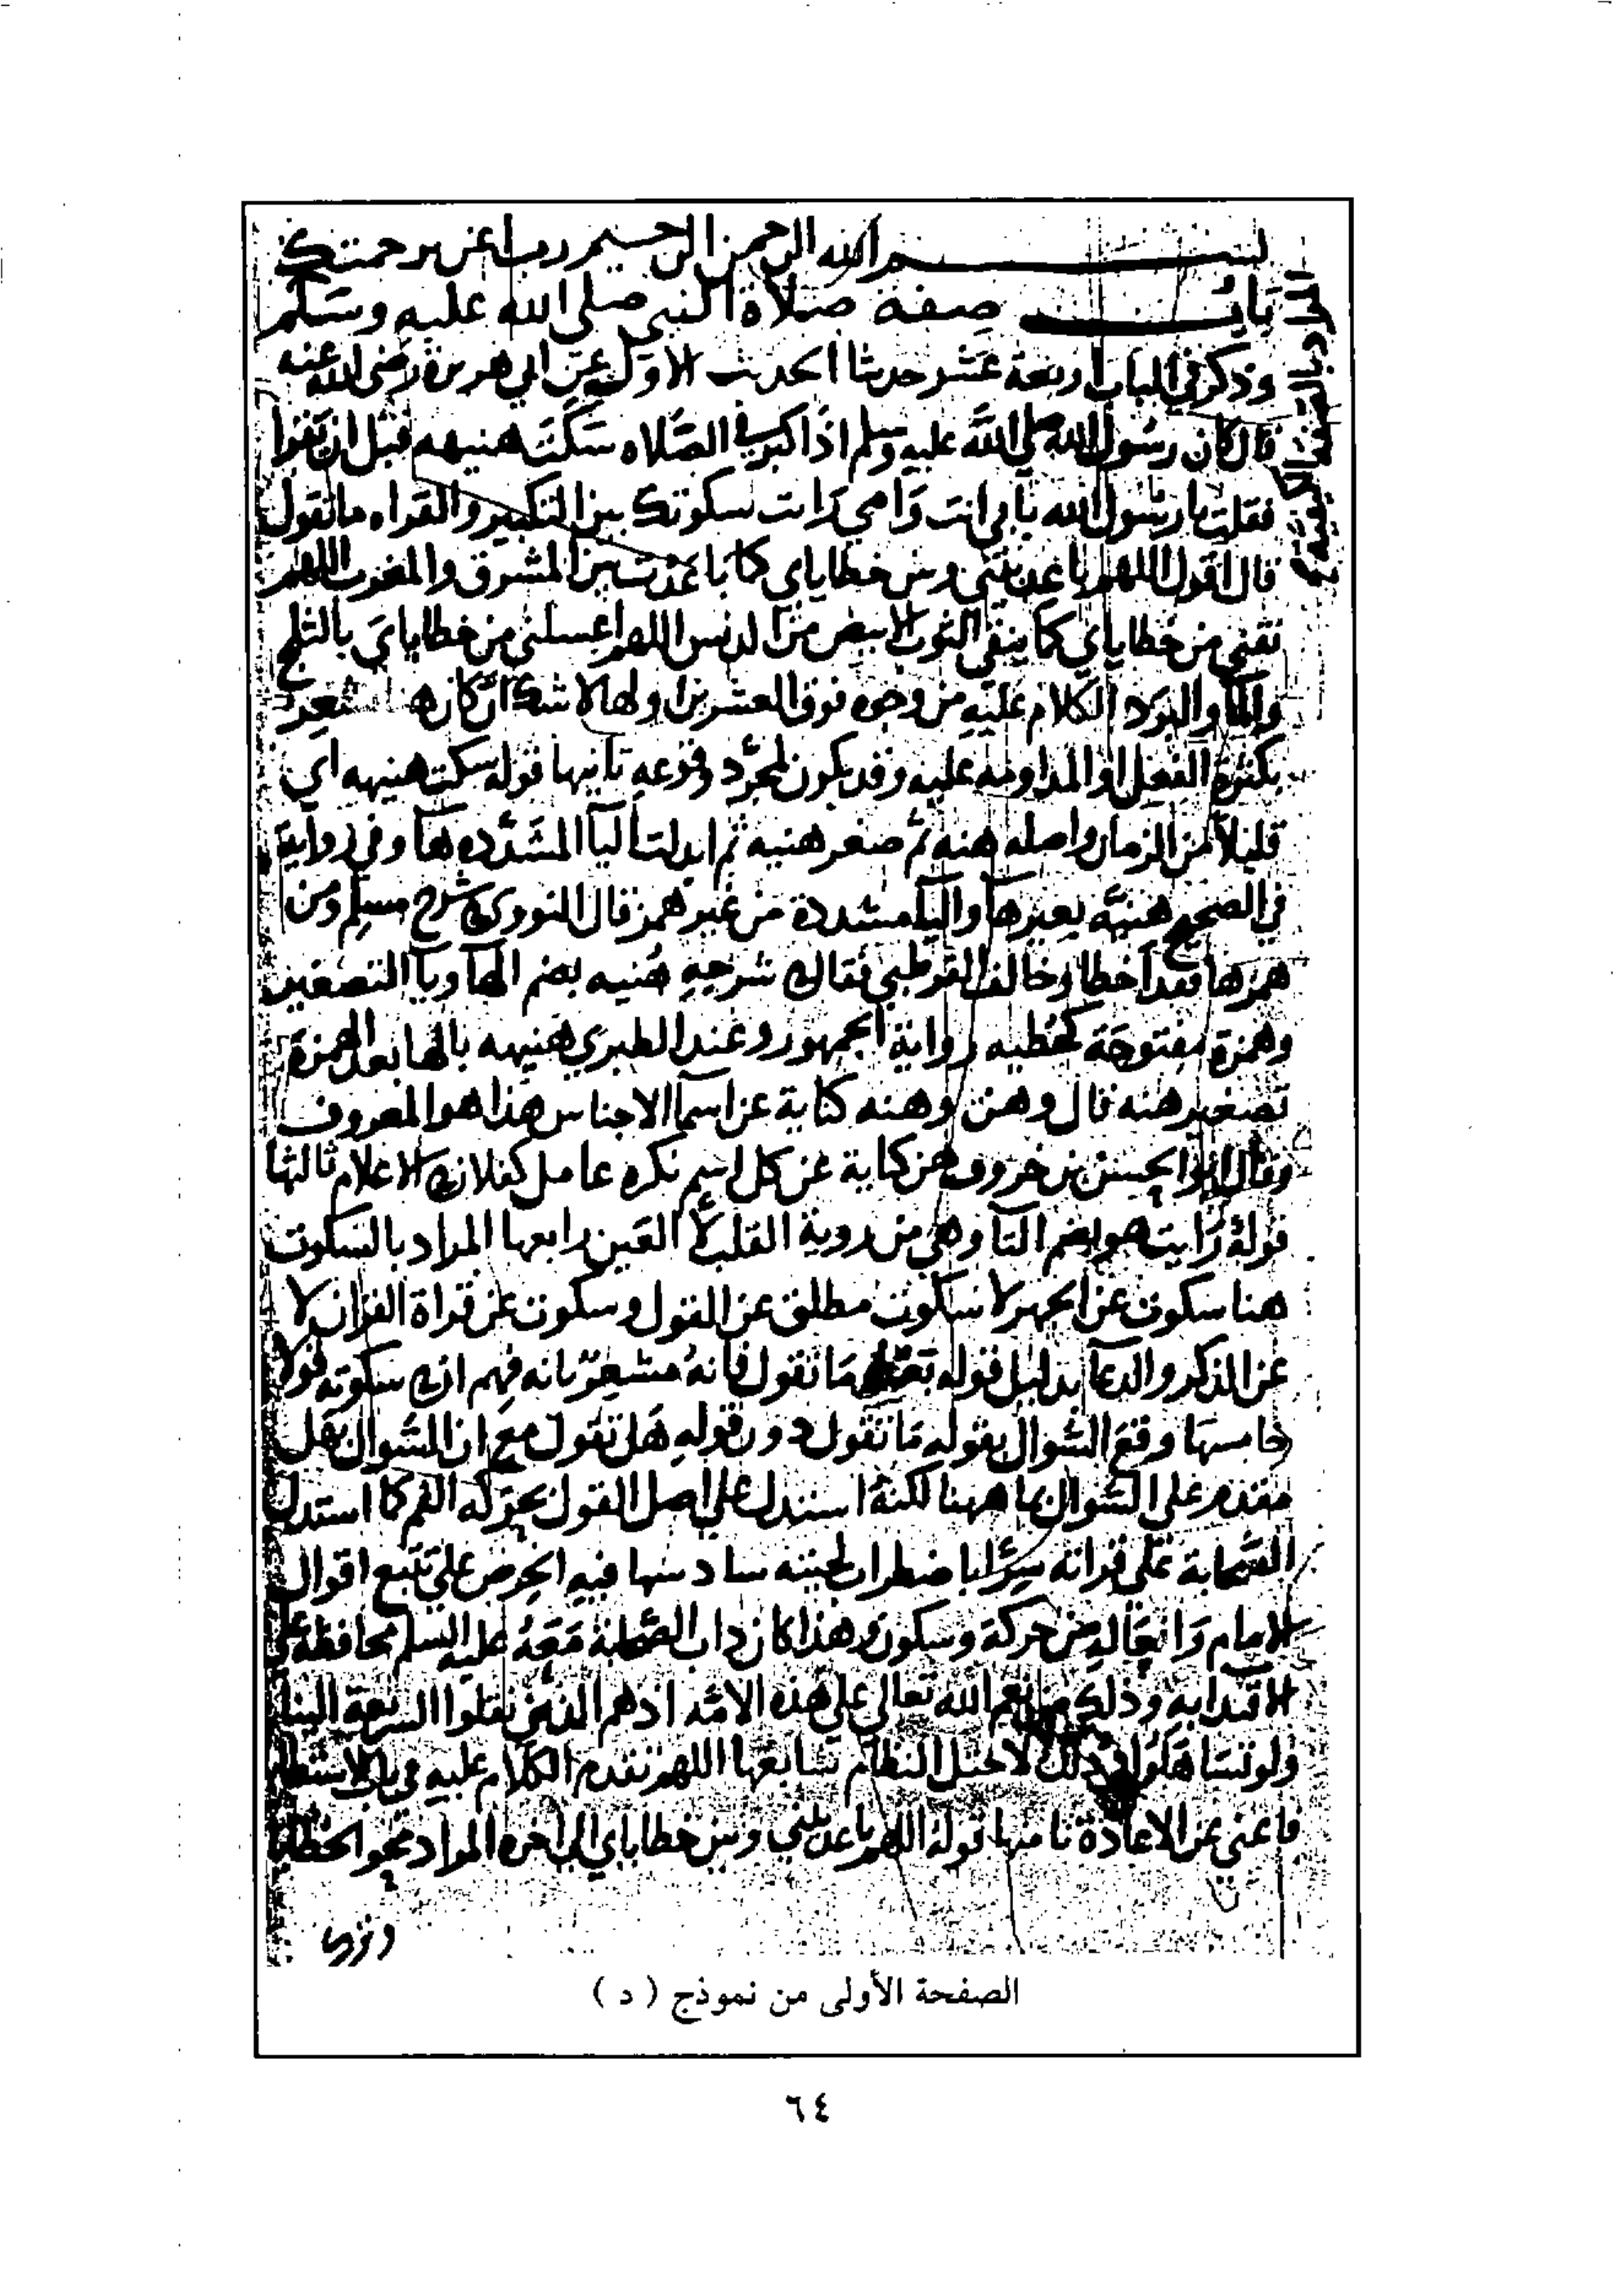 بسم الله الرحمن الرحيم رب اعن برحمتك
باب صفة صلاة النبي صلى الله عليه وسلم
وذكر في الباب اربعة عشر حديثا الحديث الاول عن ابي هريرة رضي الله عنه
قال كان رسول الله صلى الله عليه وسلم اذا كبر في الصلاه سكت هنيهه قبل ان يقرا
فقلت يا رسول الله بابي انت وامي رايت سكوتك بين التكبير والقراه ما تقول
قال اقول اللهم باعد بيني وبين خطاياي كما باعدت بين المشرق والمغرب اللهم
نقني من خطاياي كما ينقى الثوب الابيض من الدنس اللهم اغسلني من خطاياي بالثلج
والماء والبرد الكلام عليه من وجوه فوق العشرين اولها لا شك ان كان هنا تشعر
بكثرة الفعل او المداومه عليه وقد يكون لمجرد وقوعه ثانيها قوله سكت هنيهه اي
قليلا من الزمان واصله هنه ثم صغر هنيه ثم ابدلت اليا المشدده هآ وفي رواية
في الصحيح هنيه بغيرها واليا مشددة من غير همز قال النووي في شرح مسلم ومن
همزها فقد اخطا وخالف القرطبي فقال في شرحه هنيه بضم الهآ ويآ التصغير
وهمزة مفتوحة كخطيه رواية الجمهور وعند الطبري هنيهه بالها بعد الهمزة
تصغير هنه قال وهن وهنه كناية عن اسما الاجناس هذا هو المعروف
وقال ابو الحسن بن خروف هن كناية عن كل اسم نكره عامل كفلان في الاعلام ثالثها
قوله رايت هو بضم التآ وهي من روية القلب لا العين رابعها المراد بالسكوت
هنا سكوت عن الجهر لا سكوت مطلق عن القول وسكوت عن قراة القران لا
عن الذكر والدعآ بدليل قوله ما تقول فانه مشعر بانه فهم ان في سكوته قولا
خامسها وقع السوال بقوله ما تقول دون قوله هل تقول مع ان السوال بهل
مقدم على السوال بما ههنا لكنه استدل على اصل القول بحركة الفم كما استدل
الصحابة على قراته سرا باضطراب لحيته سادسها فيه الحرص على تتبع اقوال
الامام وافعاله من حركة وسكون وهذا كان داب الصحابة معه عليه السلم محافظة على
الاقتدا به وذلك من نعم الله تعالى على هذه الامة اذ هم الذين نقلوا الشريعة الينا
ولو تساهلوا في ذلك لاختل النظام سابعها اللهم تقدم الكلام عليه في باب الاستطابه
فاغني عن الاعادة ثامنها قوله اللهم باعد بيني وبين خطاياي الى اخره المراد محو الخطايا
وتركها
الصفحة الأولى من نموذج ( د )
٦٤